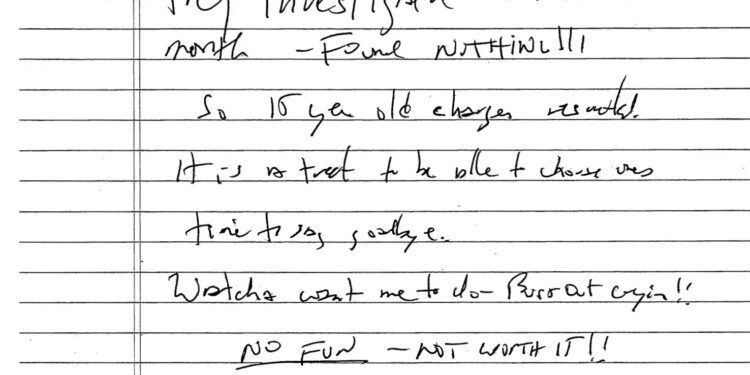 investigated
month - FOUND NOTHING!!!
So 15 year old charges resulted.
It is a treat to be able to choose ones
time to say goodbye.
Watcha want me to do - Burst out cryin!!
NO FUN - NOT WORTH IT!!